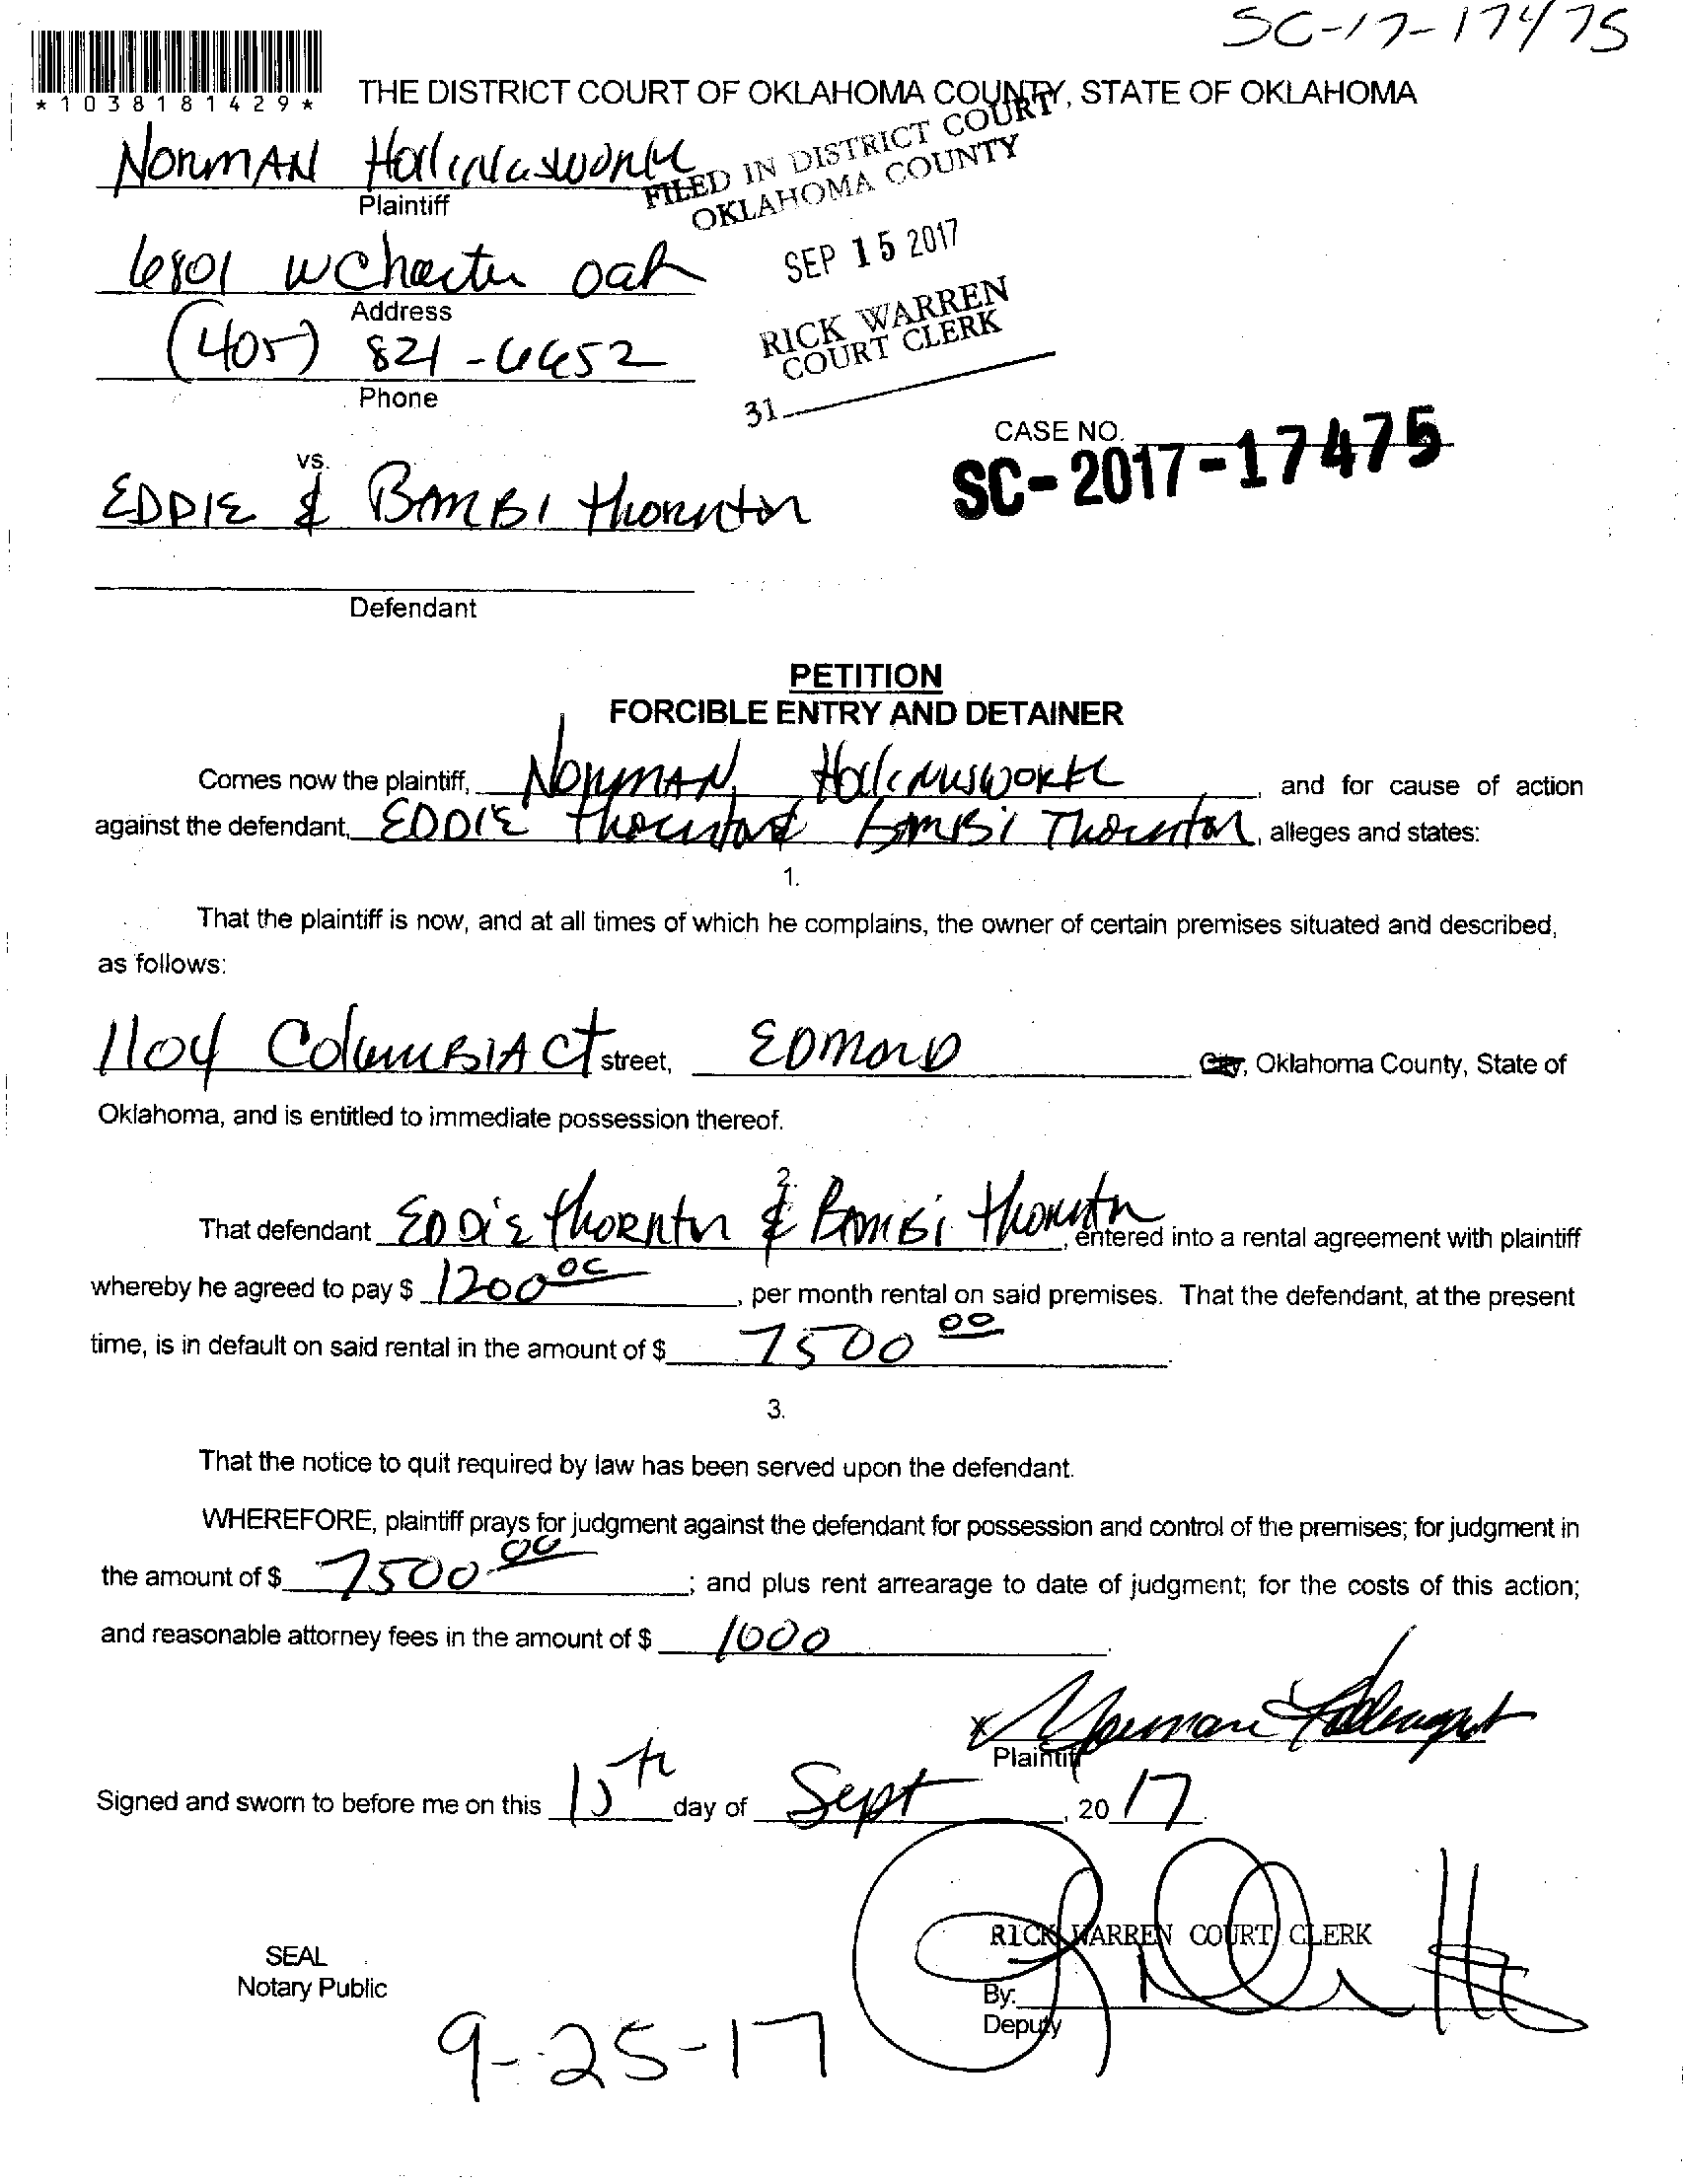 SC-17-17475
*1038181429*
THE DISTRICT COURT OF OKLAHOMA COUNTY, STATE OF OKLAHOMA
FILED IN DISTRICT COURT
OKLAHOMA COUNTY
NORMAN Hollingsworth
Plaintiff
SEP 15 2017
6801 W Charter Oak
Address
RICK WARREN
COURT CLERK
(405) 821-6652
Phone
31
CASE NO.
SC-2017-17475
vs.
EDDIE & BAMBI thornton
Defendant
PETITION
FORCIBLE ENTRY AND DETAINER
Comes now the plaintiff, NORMAN Hollingsworth and for cause of action
against the defendant, EDDIE thornton & BAMBI Thornton, alleges and states:
1.
That the plaintiff is now, and at all times of which he complains, the owner of certain premises situated and described,
as follows:
1104 ColumBIA Ct street, EDMOND City, Oklahoma County, State of
Oklahoma, and is entitled to immediate possession thereof.
2.
That defendant EDDiE thornton & BAMBi thornton, entered into a rental agreement with plaintiff
whereby he agreed to pay $ 1200 00, per month rental on said premises. That the defendant, at the present
time, is in default on said rental in the amount of $ 7500 00.
3.
That the notice to quit required by law has been served upon the defendant.
WHEREFORE, plaintiff prays for judgment against the defendant for possession and control of the premises; for judgment in
the amount of $ 7500.00; and plus rent arrearage to date of judgment; for the costs of this action;
and reasonable attorney fees in the amount of $ 1000.
x Norman Hollingsworth
Plaintiff
Signed and sworn to before me on this 15th day of Sept, 20 17.
RICK WARREN COURT CLERK
SEAL
Notary Public
By:
Deputy
9-25-17